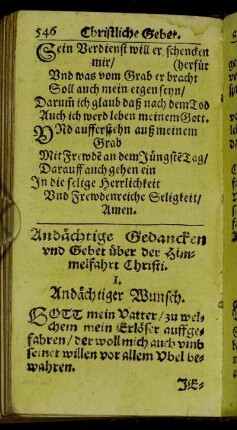 546 Christliche Gebet.
Sein Verdienst will er schencken
mir/ (herfür
Vnd was vom Grab er bracht
Soll auch mein eigen seyn/
Darum̃ ich glaub daß nach dem Tod
Auch ich werd leben meinem Gott.
VNd aufferstehn auß meinem
Grab
Mit Frewdē an dem Jüngstē Tag/
Darauff auch gehen ein
In die selige Herrlichkeit
Vnd Frewdenreiche Seligkeit/
Amen.
Andächtige Gedancken
vnd Gebet über der Him-
melfahrt Christi.
1.
Andächtiger Wunsch.
GOTT mein Vatter/ zu wel-
chem mein Erlöser auffge-
fahren/ der woll mich auch vmb
seinet willen vor allem Vbel be-
wahren.
JE-